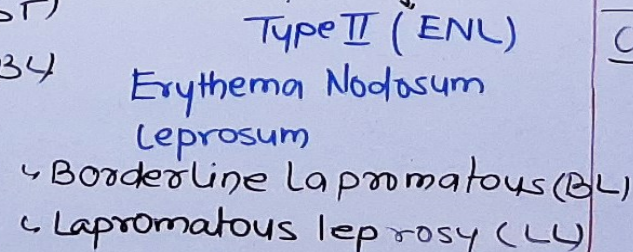 Type II (ENL)
34
Erythema Nodosum
Leprosum
↳ Borderline Lapromatous (BL)
↳ Lapromatous leprosy (LL)